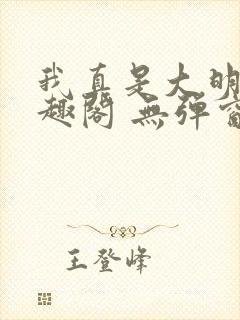 我真是大明
趣閣 無彈窗
王登峰